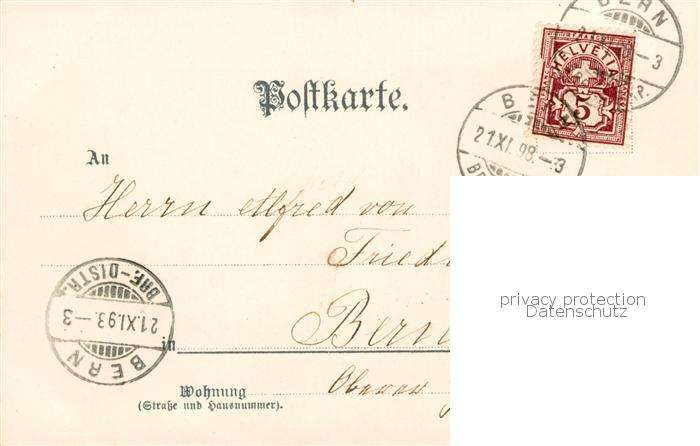 BERN
Postkarte.
HELVETIA
5
21.XI.98.-3
An
Herrn Alfred von
Fried
BRF.-DISTR.
21.XI.93.-3
BERN
in Bern
privacy protection
Datenschutz
Wohnung
Oberer
(Straße und Hausnummer).